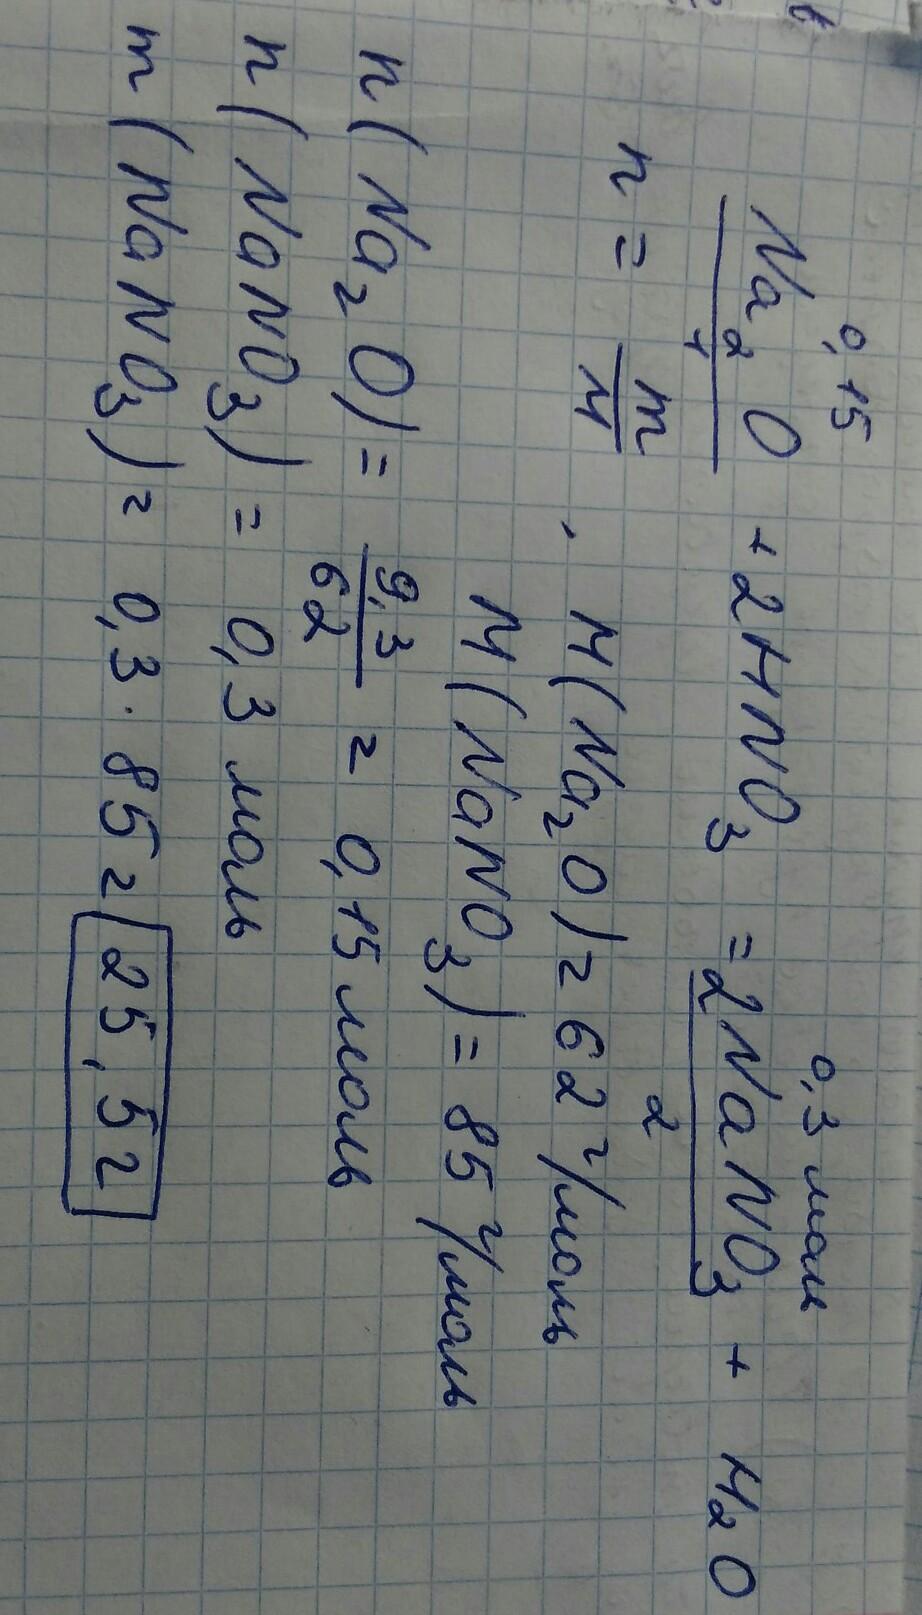 0,15 0,3 моль
Na₂O + 2HNO₃ = 2NaNO₃ + H₂O
1 2
n = m/M , M(Na₂O) = 62 г/моль
M(NaNO₃) = 85 г/моль
n(Na₂O) = 9,3/62 = 0,15 моль
n(NaNO₃) = 0,3 моль
m(NaNO₃) = 0,3 · 85 = 25,5 г